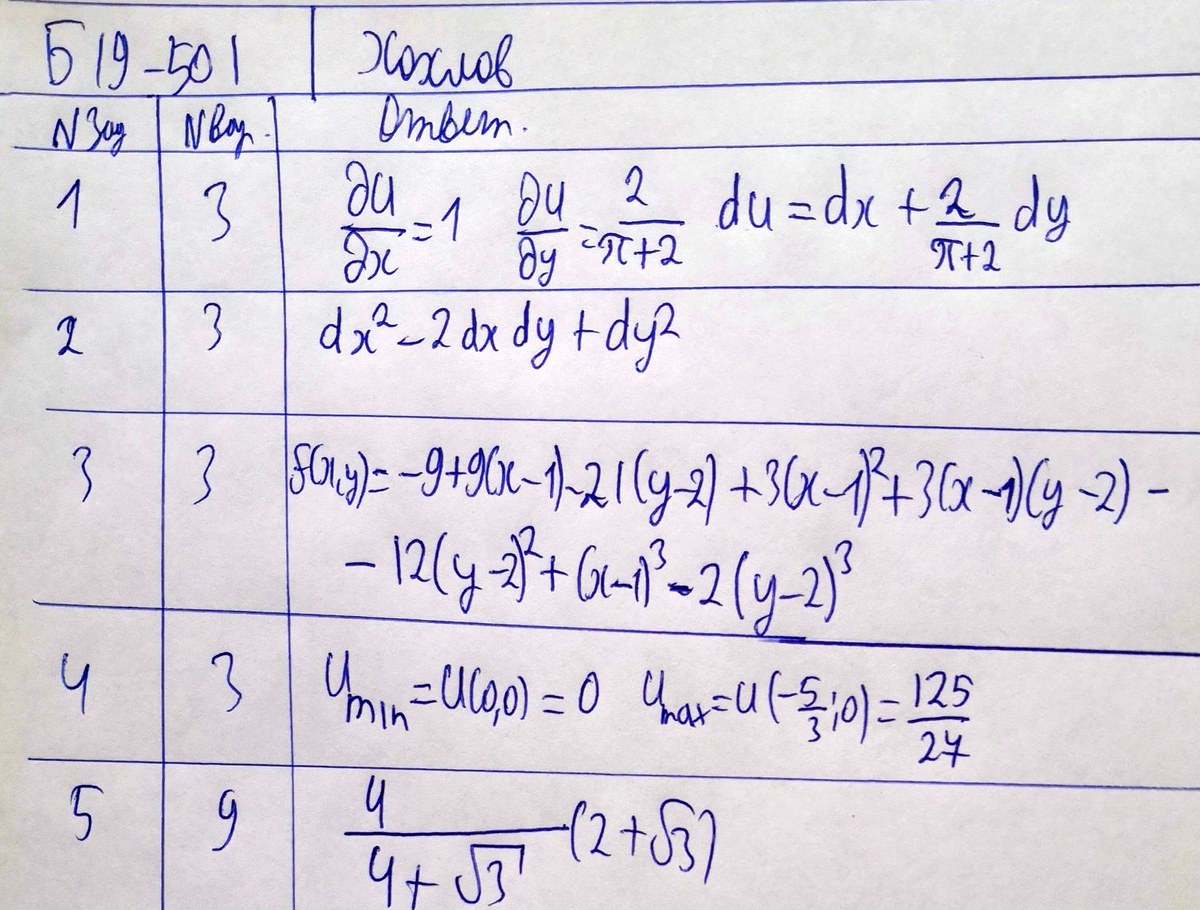 Б19-501 Хохлов
N Зад N Вар. Ответ.
1 3 ∂u/∂x = 1 ∂u/∂y = 2/(π+2) du = dx + 2/(π+2) dy
2 3 dx² - 2 dx dy + dy²
3 3 f(x,y) = -9+9(x-1)-21(y-2)+3(x-1)²+3(x-1)(y-2) -
- 12(y-2)² + (x-1)³ - 2(y-2)³
4 3 u_min = u(0,0) = 0 u_max = u(-5/3;0) = 125/27
5 9 4/(4+√3) (2+√3)